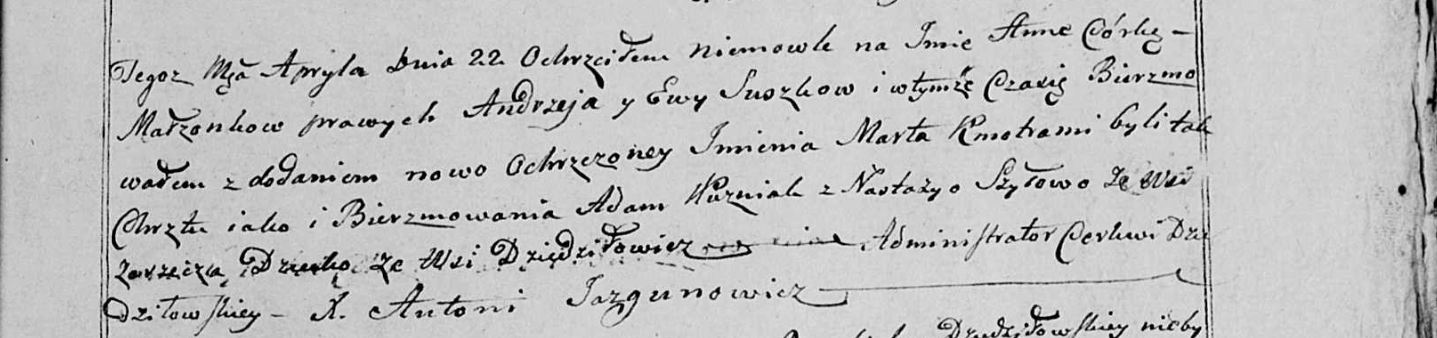 Tegoz Mca Apryla Dnia 22 Ochrzciłem niemowle na Imie Anne Córkę –
Małzonkow prawych Andrzeja y Ewy Suszkow i wtymże Czasię Bierzmo
wałem z dodaniem nowo Ochrzczoney Imienia Marta Kmotrami byli tak
Chrztu iako i Bierzmowania Adam Kuzniak z Nastazyo Szyłowo ze Wsi
Zarzecza ze Wsi Dziędziłowicz Administrator Cerkwi Dzie
dziłowskiey – X. Antoni Jazgunowicz
Dziedziłowskiey nieby